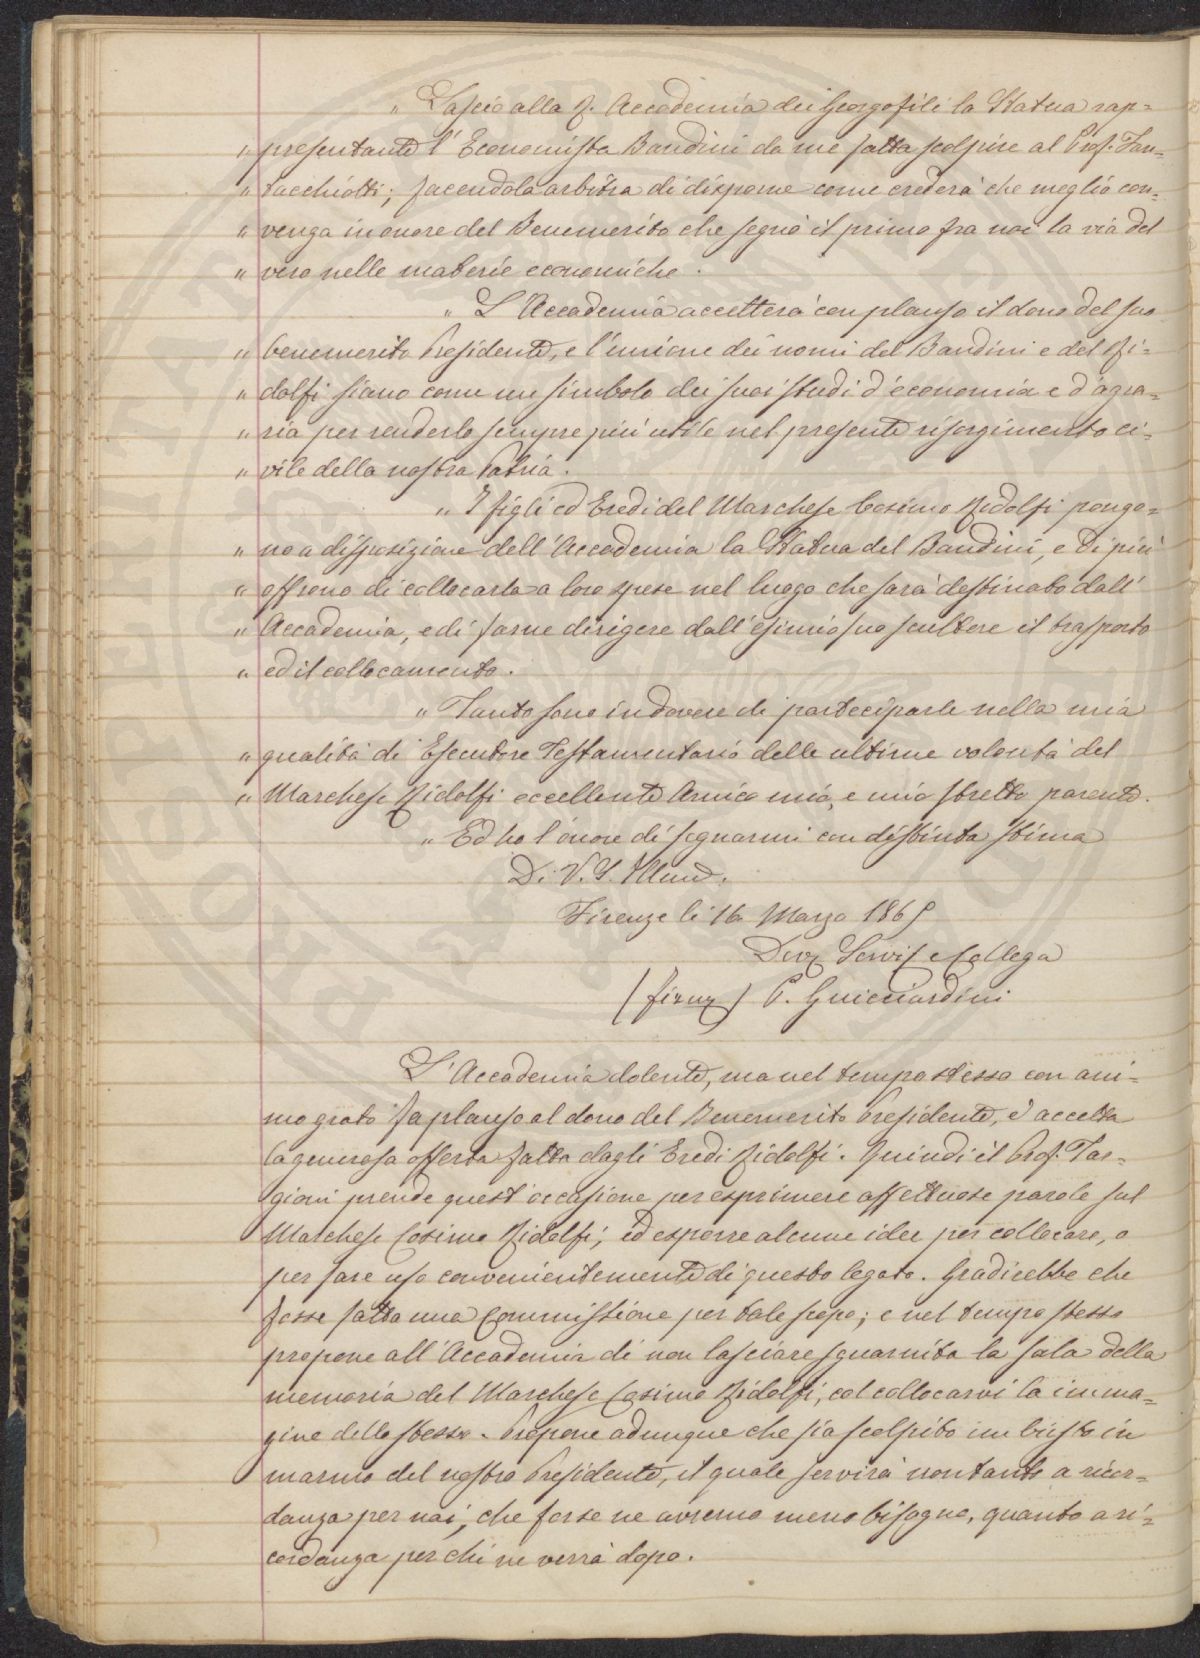 „ Lascio alla R. Accademia dei Georgofili la Statua rap=
„ presentante l'Economista Bandini da me fatta scolpire al Prof. Fan=
„ tacchiotti; facendola arbitra di disporne come crederà che meglio con=
„ venga in onore del Benemerito che segnò il primo fra noi la via del
„ vero nelle materie economiche.
„ L'Accademia accetterà con plauso il dono del suo
„ benemerito Presidente, e l'unione dei nomi del Bandini e del Ri=
„ dolfi siano come un simbolo dei suoi studi d'economia e d'agra=
„ ria per renderlo sempre più utile nel presente risorgimento ci=
„ vile della nostra Patria.
„ I figli ed Eredi del Marchese Cosimo Ridolfi pongo=
„ no a disposizione dell'Accademia la Statua del Bandini, e di più
„ offrono di collocarla a loro spese nel luogo che sarà destinato dall'
„ Accademia, e di farne dirigere dall'esimio suo scultore il trasporto
„ ed il collocamento.
„ Tanto sono in dovere di partecipare nella mia
„ qualità di Esecutore Testamentario delle ultime volontà del
„ Marchese Ridolfi eccellente Amico mio, e mio stretto parente.
„ Ed ho l'onore di segnarmi con distinta stima
Di V. S. Illma.
Firenze li 16 Marzo 1865
Dev. Serv. e Collega
(firm) P. Guicciardini
L'Accademia dolente, ma nel tempo stesso con ani=
mo grato fa plauso al dono del Benemerito Presidente, e accetta
la generosa offerta fatta dagli Eredi Ridolfi. Quindi il Prof. Tar=
gioni prende quest'occasione per esprimere affettuose parole sul
Marchese Cosimo Ridolfi; ed esporre alcune idee per collocare, o
per fare uso convenientemente di questo legato. Gradirebbe che
fosse fatta una Commissione per tale scopo; e nel tempo stesso
propone all'Accademia di non lasciare sguarnita la sala della
memoria del Marchese Cosimo Ridolfi, col collocarvi la imma=
gine dello stesso. Propone adunque che sia scolpito un busto in
marmo del nostro Presidente, il quale servirà non tanto a ricor=
danza per noi, che forse ne avremo meno bisogno, quanto a ri=
cordanza per chi ne verrà dopo.